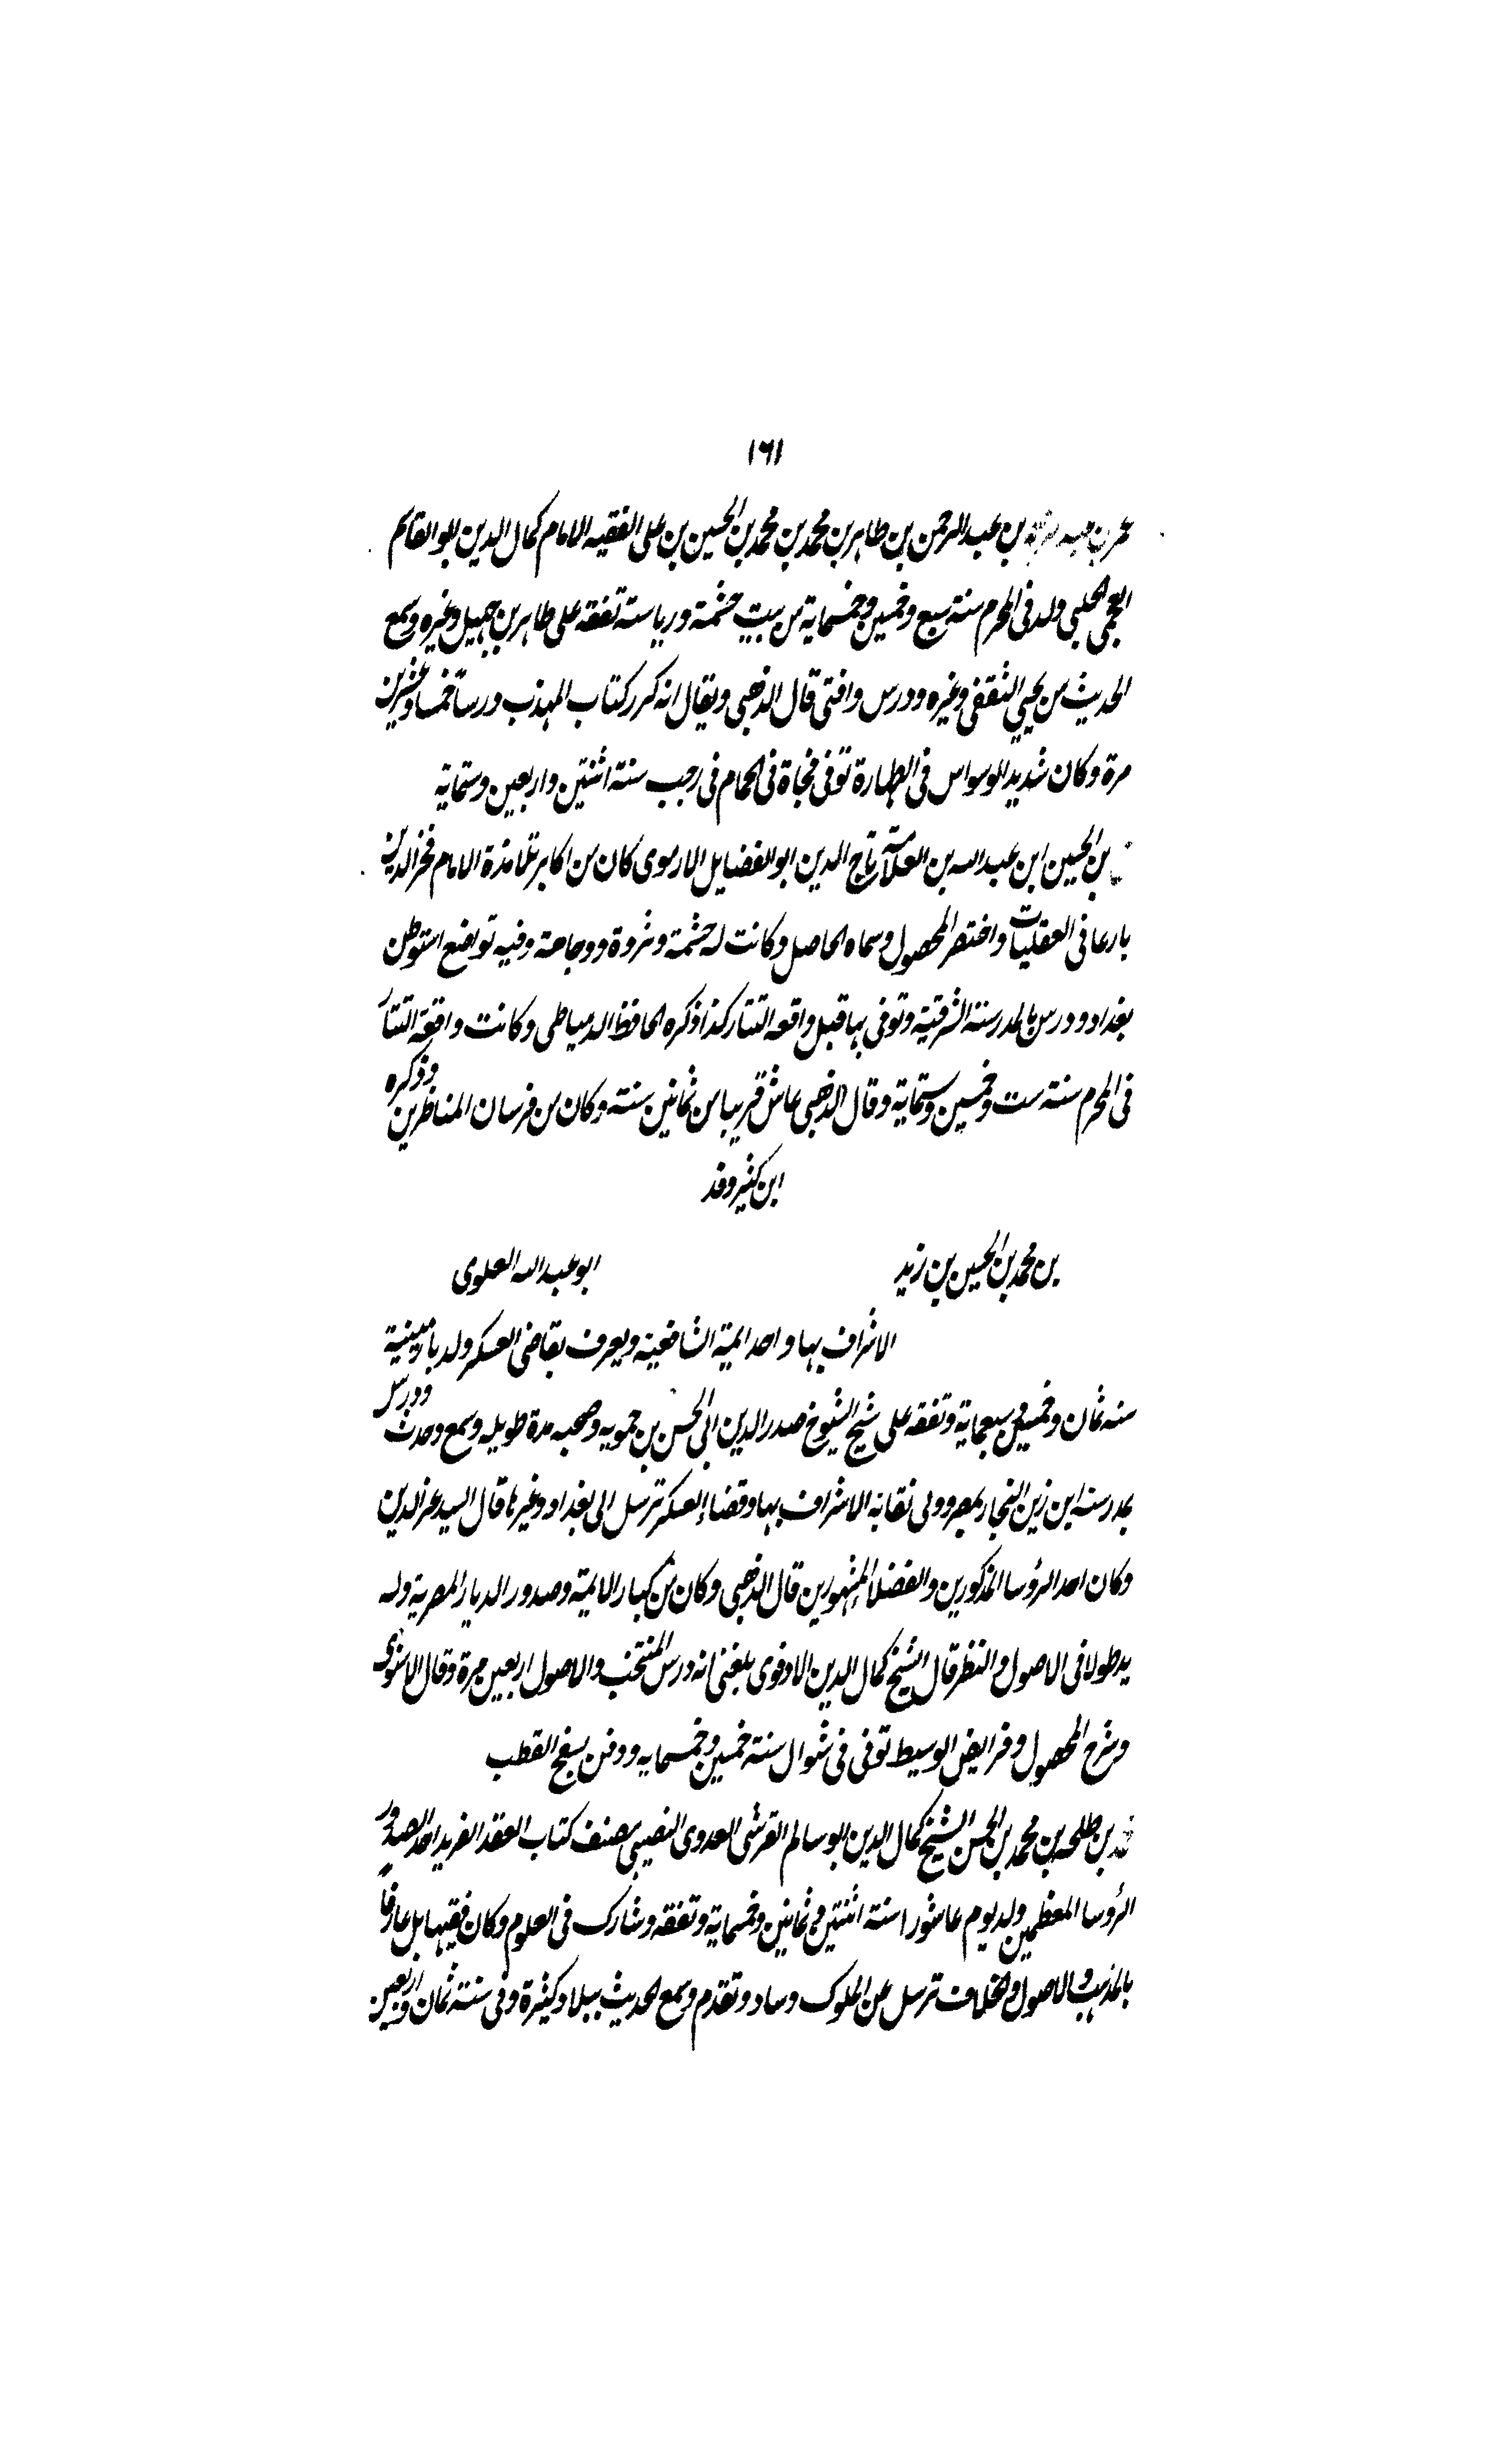 ١٦١
عمر بن بن عبد الرحمن بن طاهر بن محمد بن محمد بن الحسين بن على الفقيه الامام كمال الدين ابو القاسم
العجمى الحلبى ولد فى المحرم سنة سبع وخمسين وخمسماية من بيت حشمة ورياسة تفقه على طاهر بن جهبل وغيره وسمع
الحديث من يحيى الثقفى وغيره ودرس وافتى قال الذهبى ويقال انه كرر كتاب المهذب ورسا خمسا وعشرين
مرة وكان شديد الوسواس فى الطهارة توفى فجاة فى الحمام فى رجب سنة اثنتين واربعين وستماية
بن الحسين ابن عبد الله بن العلامة تاج الدين ابو الفضايل الارموى كان من اكابر تلامذة الامام فخر الدين
بارعا فى العقليات واختصر المحصول وسماه الحاصل وكانت له حشمة وثروة ووجاهة وفيه تواضع استوطن
بغداد ودرس بالمدرسة الشرقية وتوفى بها قبل واقعه التتار كذا ذكره الحافظ الدمياطى وكانت واقعة التتار
فى المحرم سنة ست وخمسين وستماية وقال الذهبى عاش قريبا من ثمانين سنة وكان من فرسان المناظرين وذكره
ابن كثير وقد
بن محمد بن الحسين بن زيد ابو عبد الله العلوى
الاشراف بها واحد ايمة الشافعية ويعرف بقاضى العسكر ولد بارمينية
سنه ثمان وخمسين سبعماية وتفقه على شيخ الشيوخ صدر الدين ابى الحسن بن حمويه وصحبه مدة طويله وسمع وحدث ودرس
بمدرسة ابن زين التجار بمصر وولى نقابة الاشراف بها وقضاء العسكر ترسل الى بغداد وغيرها قال السيد عز الدين
وكان احد الرؤسا المذكورين والفضلا المشهورين قال الذهبى وكان من كبار الايمة وصدور الديار المصرية وله
يد طولا فى الاصول والنظر قال الشيخ كمال الدين الادفوى بلغنى انه درس المنتخب والاصول اربعين مرة وقال الاسنوى
وشرح المحصول وفرايض الوسيط توفى فى شوال سنة خمسين وخمسمايه ودفن بسفح القطب
بن طلحه بن محمد بن الحسن الشيخ كمال الدين ابو سالم القرشى العدوى النصيبى مصنف كتاب العقد الفريد احد الصدور
الرؤسا المعظمين ولد يوم عاشورا سنة اثنتين وثمانين وخمسماية وتفقه وشارك فى العلوم وكان فقيها بل عارفا
بالمذهب والاصول والخلاف ترسل عن الملوك وساد وتقدم وسمع الحديث ببلاد كثيرة وفى سنة ثمان واربعين